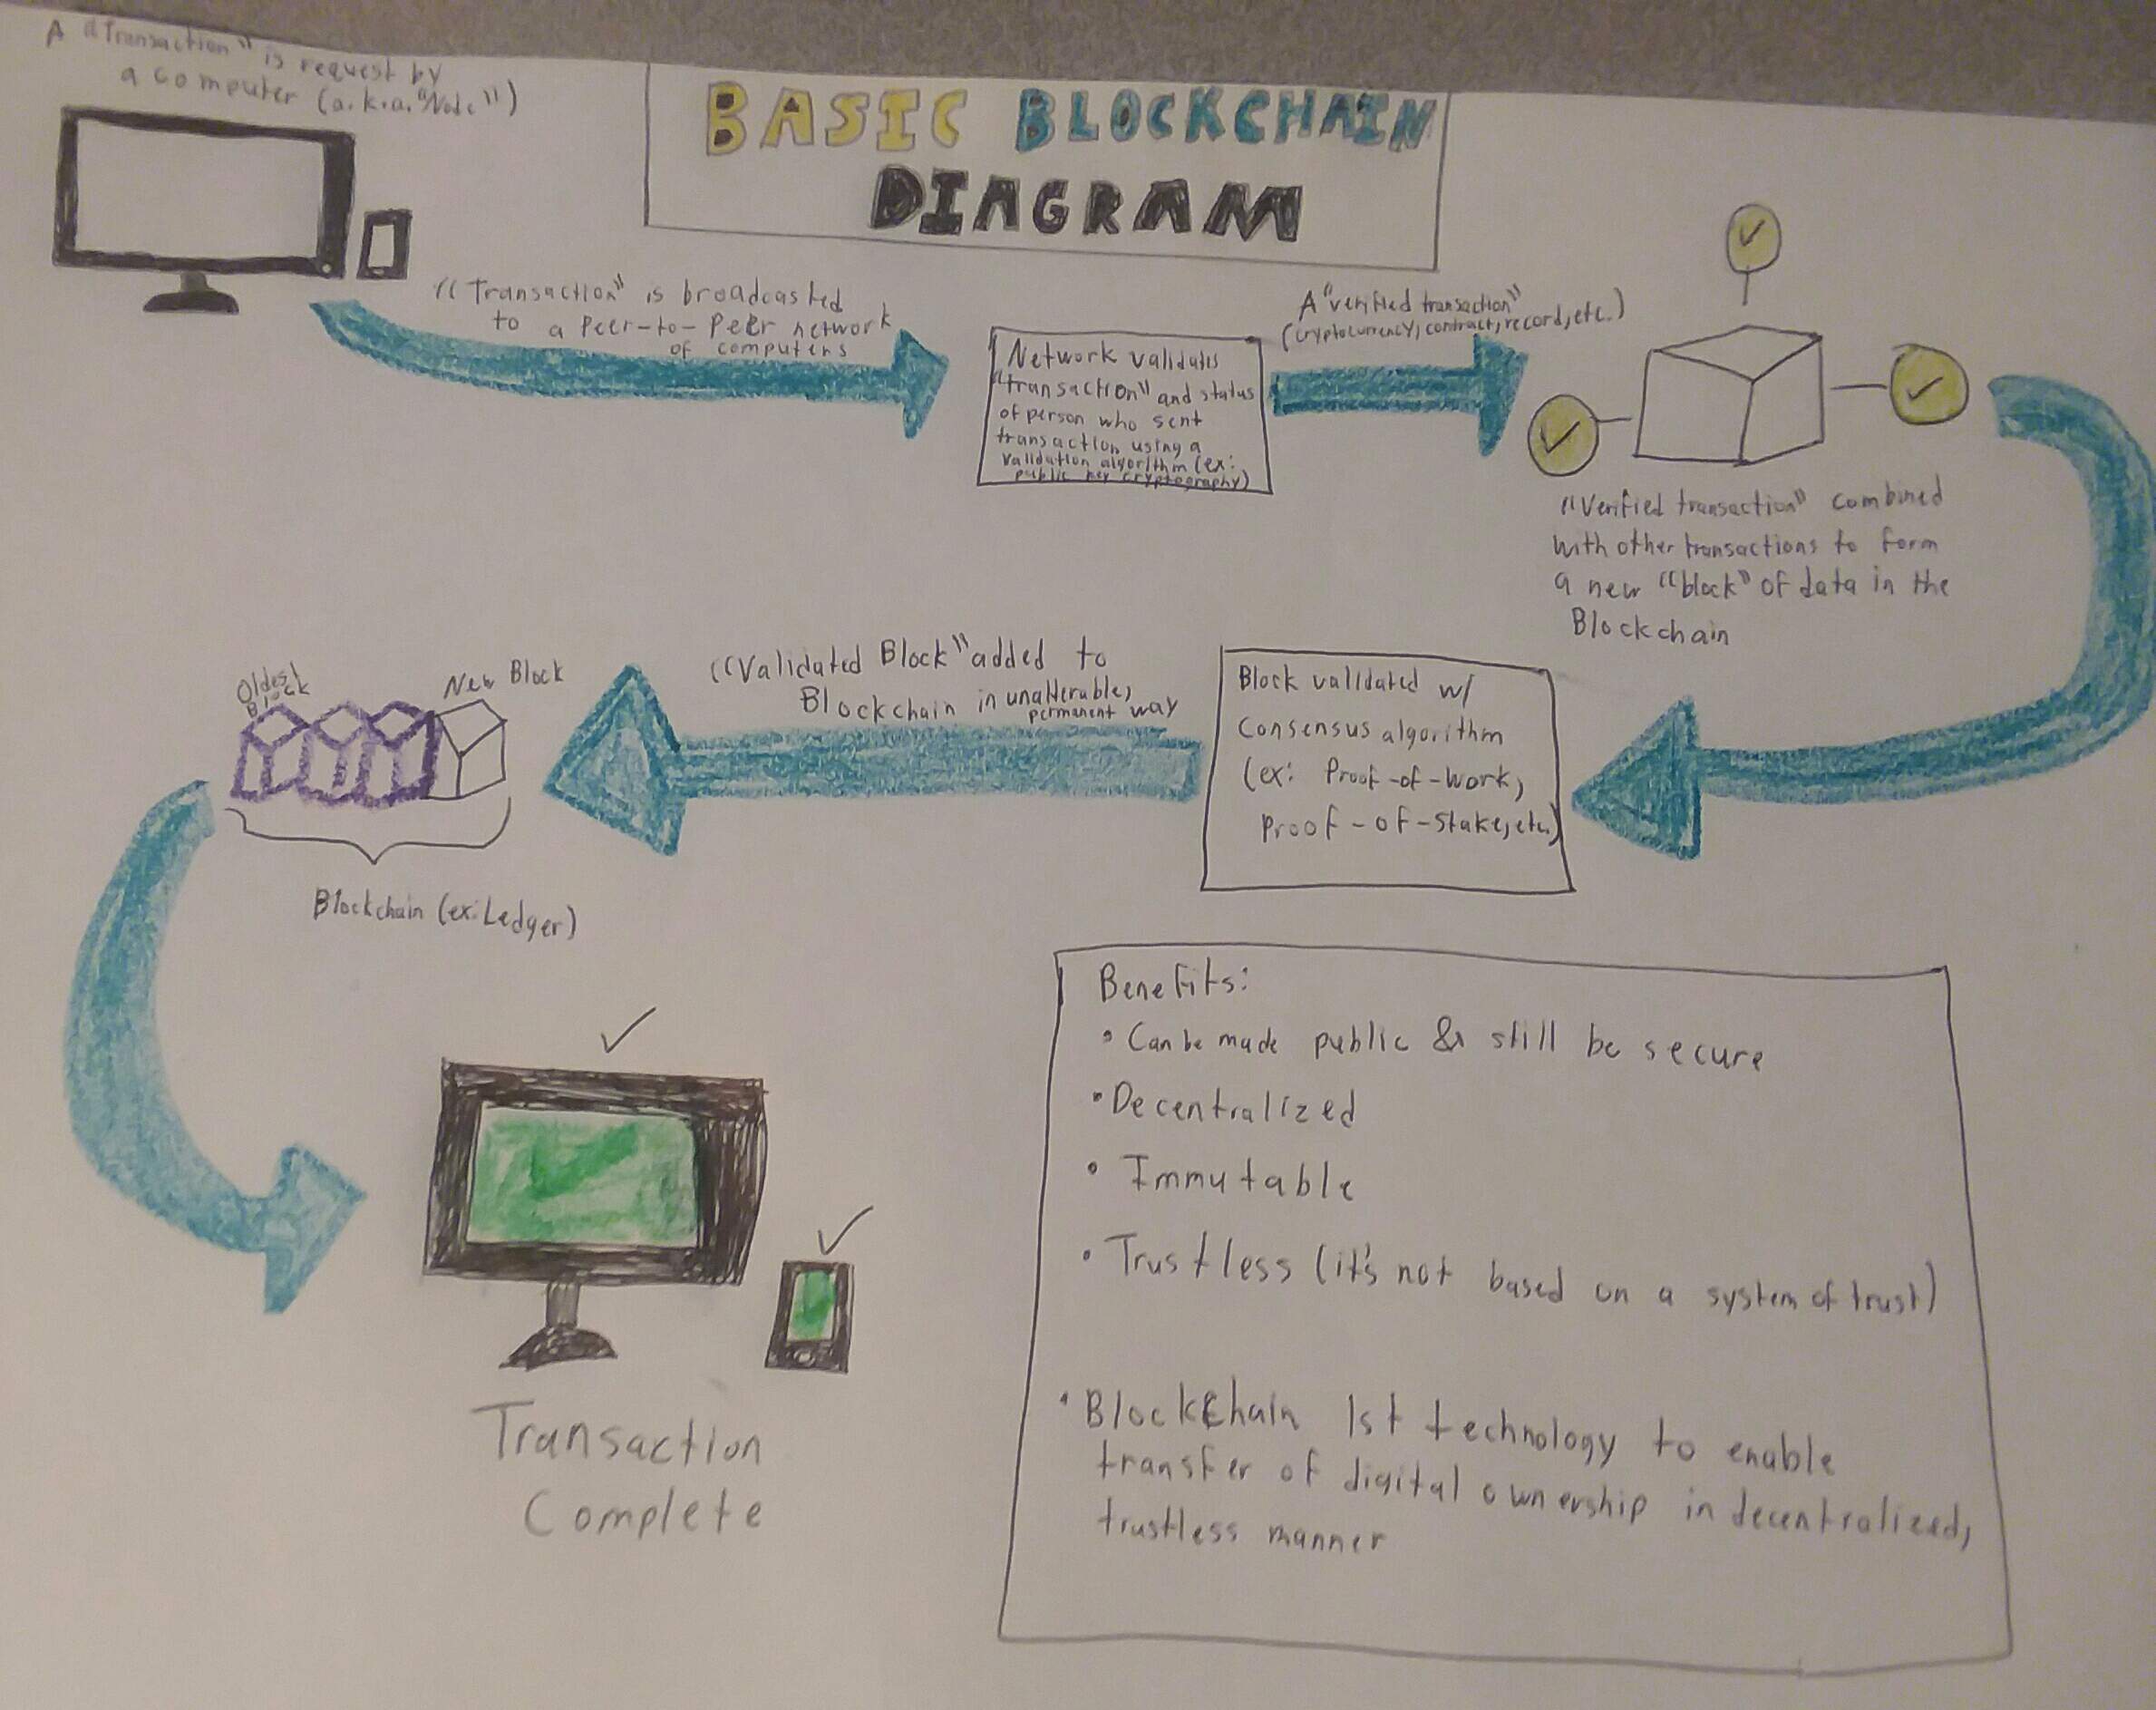 A "Transaction" is request by
a computer (a.k.a. "Node")
BASIC BLOCKCHAIN
DIAGRAM
"Transaction" is broadcasted
to a peer-to-peer network
of computers
Network validates
"transaction" and status
of person who sent
transaction using a
validation algorithm (ex:
public key cryptography)
A "verified transaction"
(cryptocurrency, contract, record, etc.)
"Verified transaction" combined
with other transactions to form
a new "block" of data in the
Blockchain
Block validated w/
Consensus algorithm
(ex: Proof-of-Work,
Proof-of-Stake, etc.)
"Validated Block" added to
Blockchain in unalterable,
permanent way
Oldest
Block
New Block
Blockchain (ex: Ledger)
Transaction
Complete
Benefits:
• Can be made public & still be secure
• Decentralized
• Immutable
• Trustless (it's not based on a system of trust)
• Blockchain 1st technology to enable
transfer of digital ownership in decentralized,
trustless manner